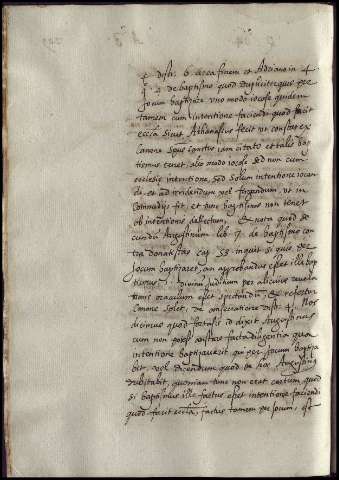 4. disti. 6. circa finem et Adriano in 4
q. 2. de baptismo quod dupliciter quis per
Jocum baptizat uno modo iocose quidem
tamen cum intentione faciendi quod facit
ecclia Sicut Athanasius fecit ut constat ex
Canone Spus Sanctus iam citato et talis bap
tismus tenet, alio modo iocose Sed non cum
ecclesie intentione, Sed Solum intentione iocan
di et ad irridendum vel fingendum, ut in
Comoediis fit, et tunc baptismus non tenet
ob intentionis defectum. Et nota quod se
cundum Augustinum lib. 7. de baptismo con
tra donatistas cap. 53 inquit si quis per
Jocum baptizaret, an approbandus esset ille bap
tismus, divinum juditium per alicuius revela
tionis oraculum esset expectandum, & refertur
Canone Solet, de consecratione disti. 4. Nos
dicimus quod fortassis id dixit Augustinus
cum non posset constare facta diligentia qua
intentione baptizaverit qui per Jocum baptiza
bit, vel dicendum quod de hoc Augustinus
dubitabit, quoniam tunc non erat certum quod
si baptismus ille factus esset intentione faciendi
quod facit ecclia, factus tamen per Jocum, est